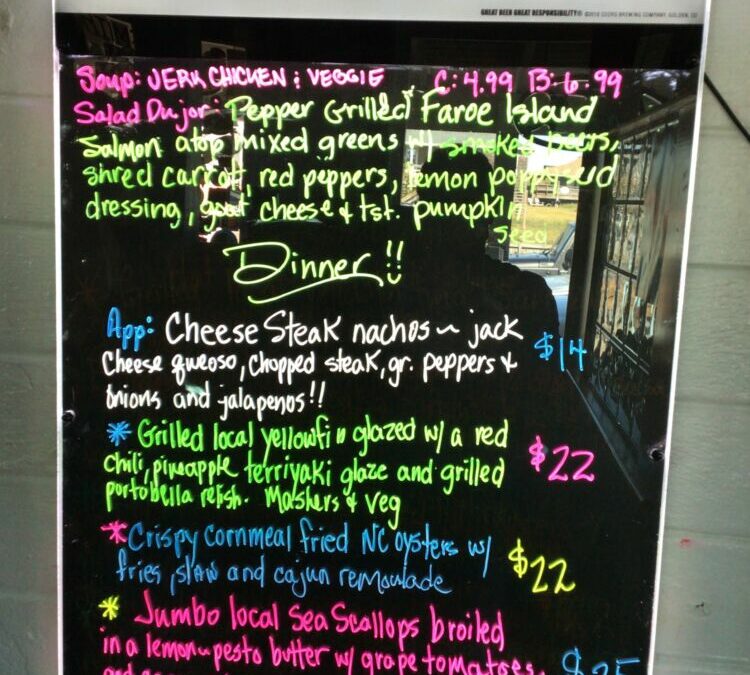 GREAT BEER GREAT RESPONSIBILITY® ©2010 COORS BREWING COMPANY, GOLDEN, CO
Soup: JERK CHICKEN ; VEGGIE C: 4.99 B: 6.99
Salad Dujor: Pepper Grilled Faroe Island
Salmon atop mixed greens w/ smoked
shred carrot, red peppers, lemon poppyseed
dressing, goat cheese & tst. pumpkin
seed
Dinner!!
App: Cheese Steak nachos ~ jack
Cheese queoso, chopped steak, gr. peppers & $14
onions and jalapenos!!
* Grilled local yellowfin glazed w/ a red
chili, pineapple terriyaki glaze and grilled $22
portobella relish. Mashers & veg
* Crispy cornmeal fried NC oysters w/
fries, slaw and cajun remoulade $22
* Jumbo local Sea Scallops broiled
in a lemon~pesto butter w/ grape tomatoes, $25
and